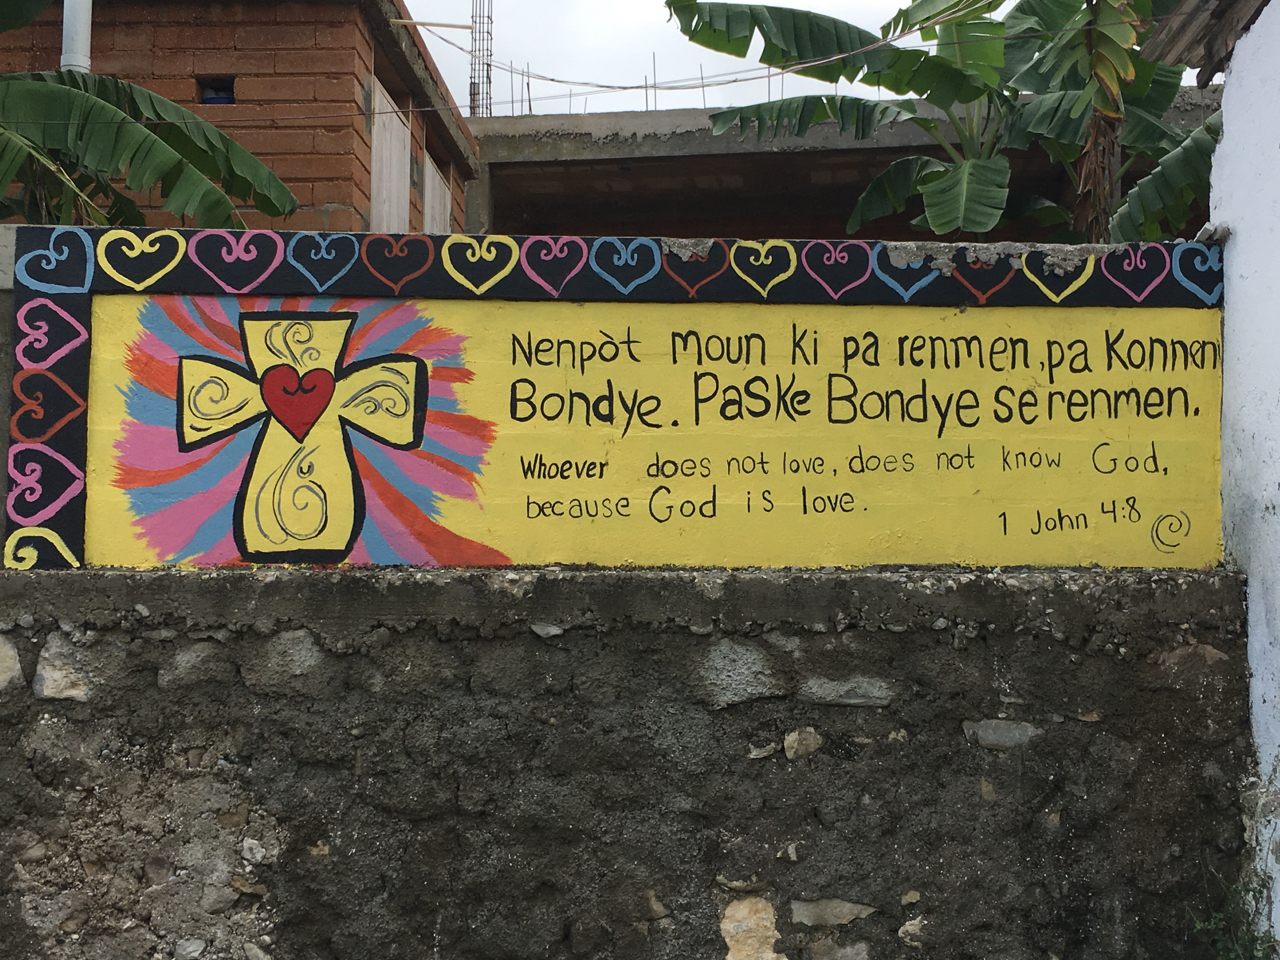 Nenpòt moun ki pa renmen, pa Konnen
Bondye. Paske Bondye se renmen.
Whoever does not love, does not know God,
because God is love.
1 John 4:8